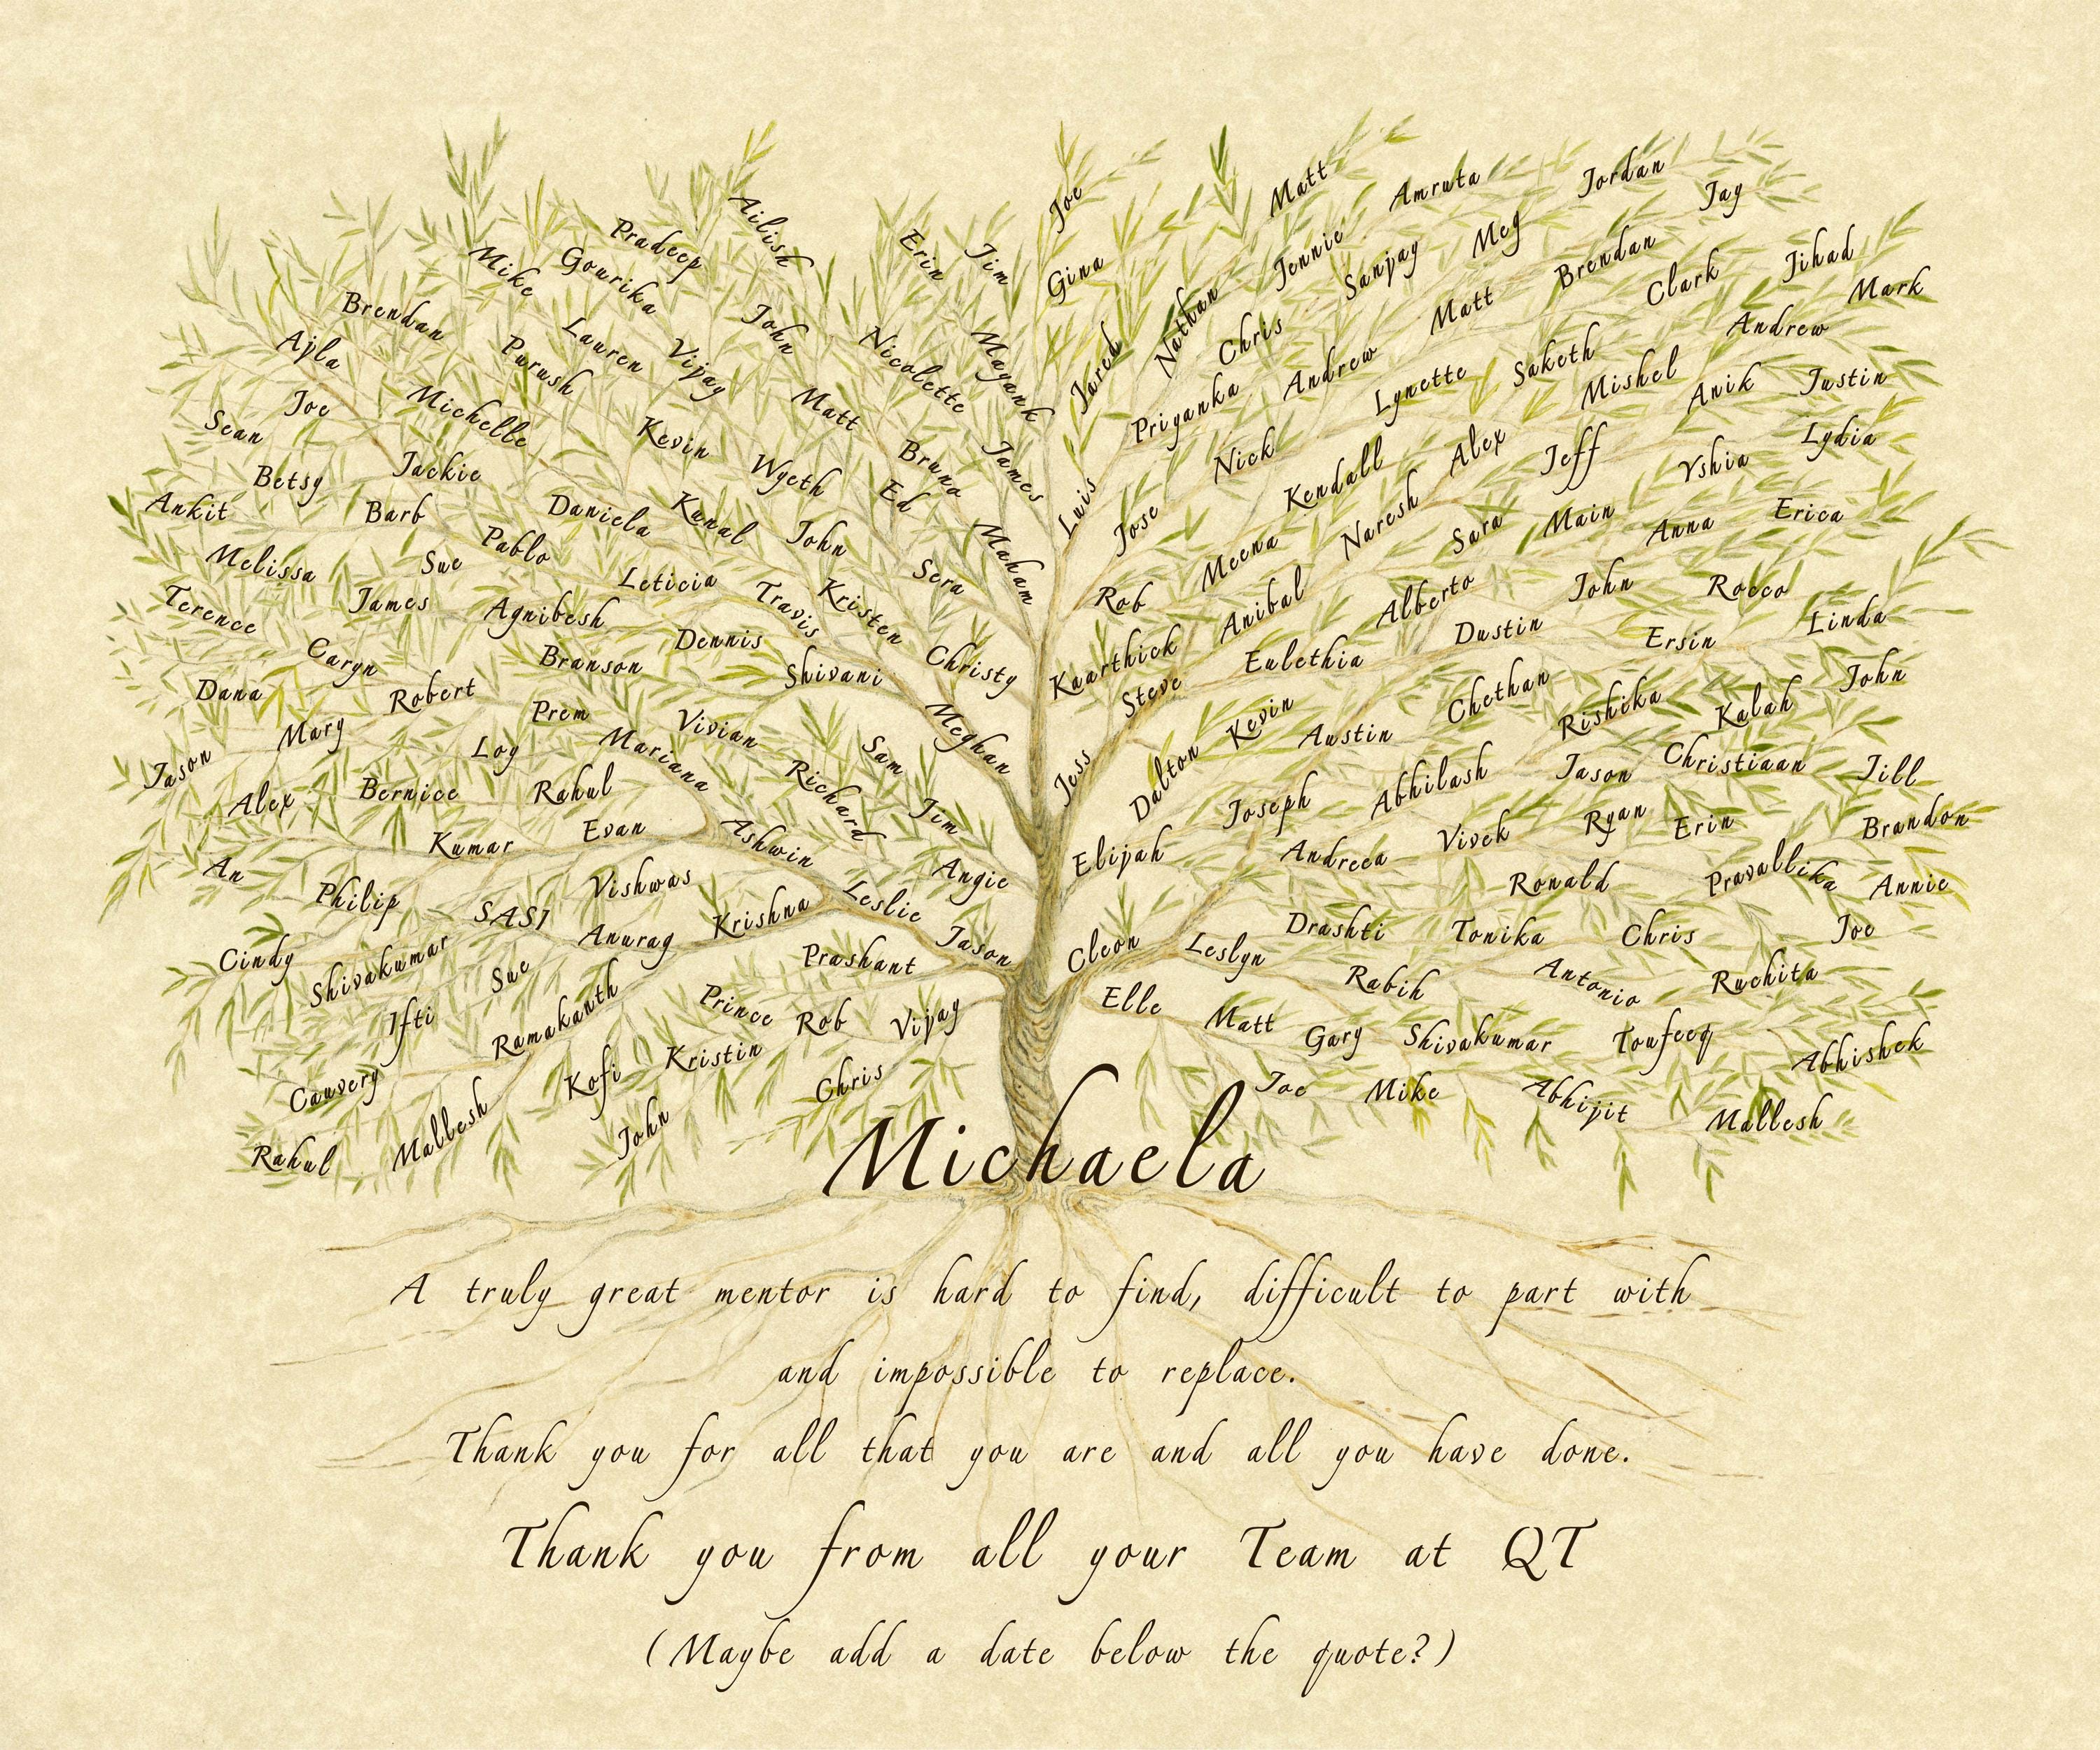 Joe
Matt
Amruta
Jordan
Jay
Ailish
Pradeep
Gourika
Mike
Erin
Jim
Gina
Jennie
Sanjay
Meg
Brendan
Clark
Jihad
Mark
Brendan
Ajla
Lauren
Purush
Vijay
John
Nicolette
Mayank
Jared
Nathan
Chris
Andrew
Matt
Saketh
Andrew
Joe
Sean
Michelle
Kevin
Matt
Priyanka
Lynette
Mishel
Anik
Justin
Betsy
Jackie
Wyeth
Bruno
James
Nick
Kendall
Alex
Jeff
Yshia
Lydia
Ankit
Barb
Daniela
Kunal
John
Ed
Luis
Jose
Meena
Naresh
Sara
Main
Anna
Erica
Melissa
Sue
Pablo
Leticia
Travis
Kristen
Sera
Maham
Rob
Anibal
Alberto
John
Rocco
Terence
James
Agnibesh
Dennis
Kaarthick
Eulethia
Dustin
Ersin
Linda
Caryn
Branson
Shivani
Christy
Steve
Dana
Robert
Prem
Vivian
Meghan
Kevin
Austin
Chethan
Rishika
Kalah
John
Mary
Loy
Mariana
Sam
Jess
Dalton
Jason
Alex
Bernice
Rahul
Richard
Jim
Joseph
Abhilash
Jason
Christiaan
Jill
Kumar
Evan
Ashwin
Elijah
Andreea
Vivek
Ryan
Erin
Brandon
An
Philip
Vishwas
Leslie
Angie
Ronald
Pravallika
Annie
SASI
Anurag
Krishna
Jason
Cleon
Leslyn
Drashti
Tonika
Chris
Joe
Cindy
Shivakumar
Sue
Prashant
Rabih
Antonio
Ruchita
Ifti
Ramakanth
Prince
Rob
Vijay
Elle
Matt
Gary
Shivakumar
Toufeeq
Abhishek
Cauvery
Kofi
Kristin
Chris
Joe
Mike
Abhijit
Mallesh
Rahul
Mallesh
John
Michaela
A truly great mentor is hard to find, difficult to part with
and impossible to replace.
Thank you for all that you are and all you have done.
Thank you from all your Team at QT
(Maybe add a date below the quote?)